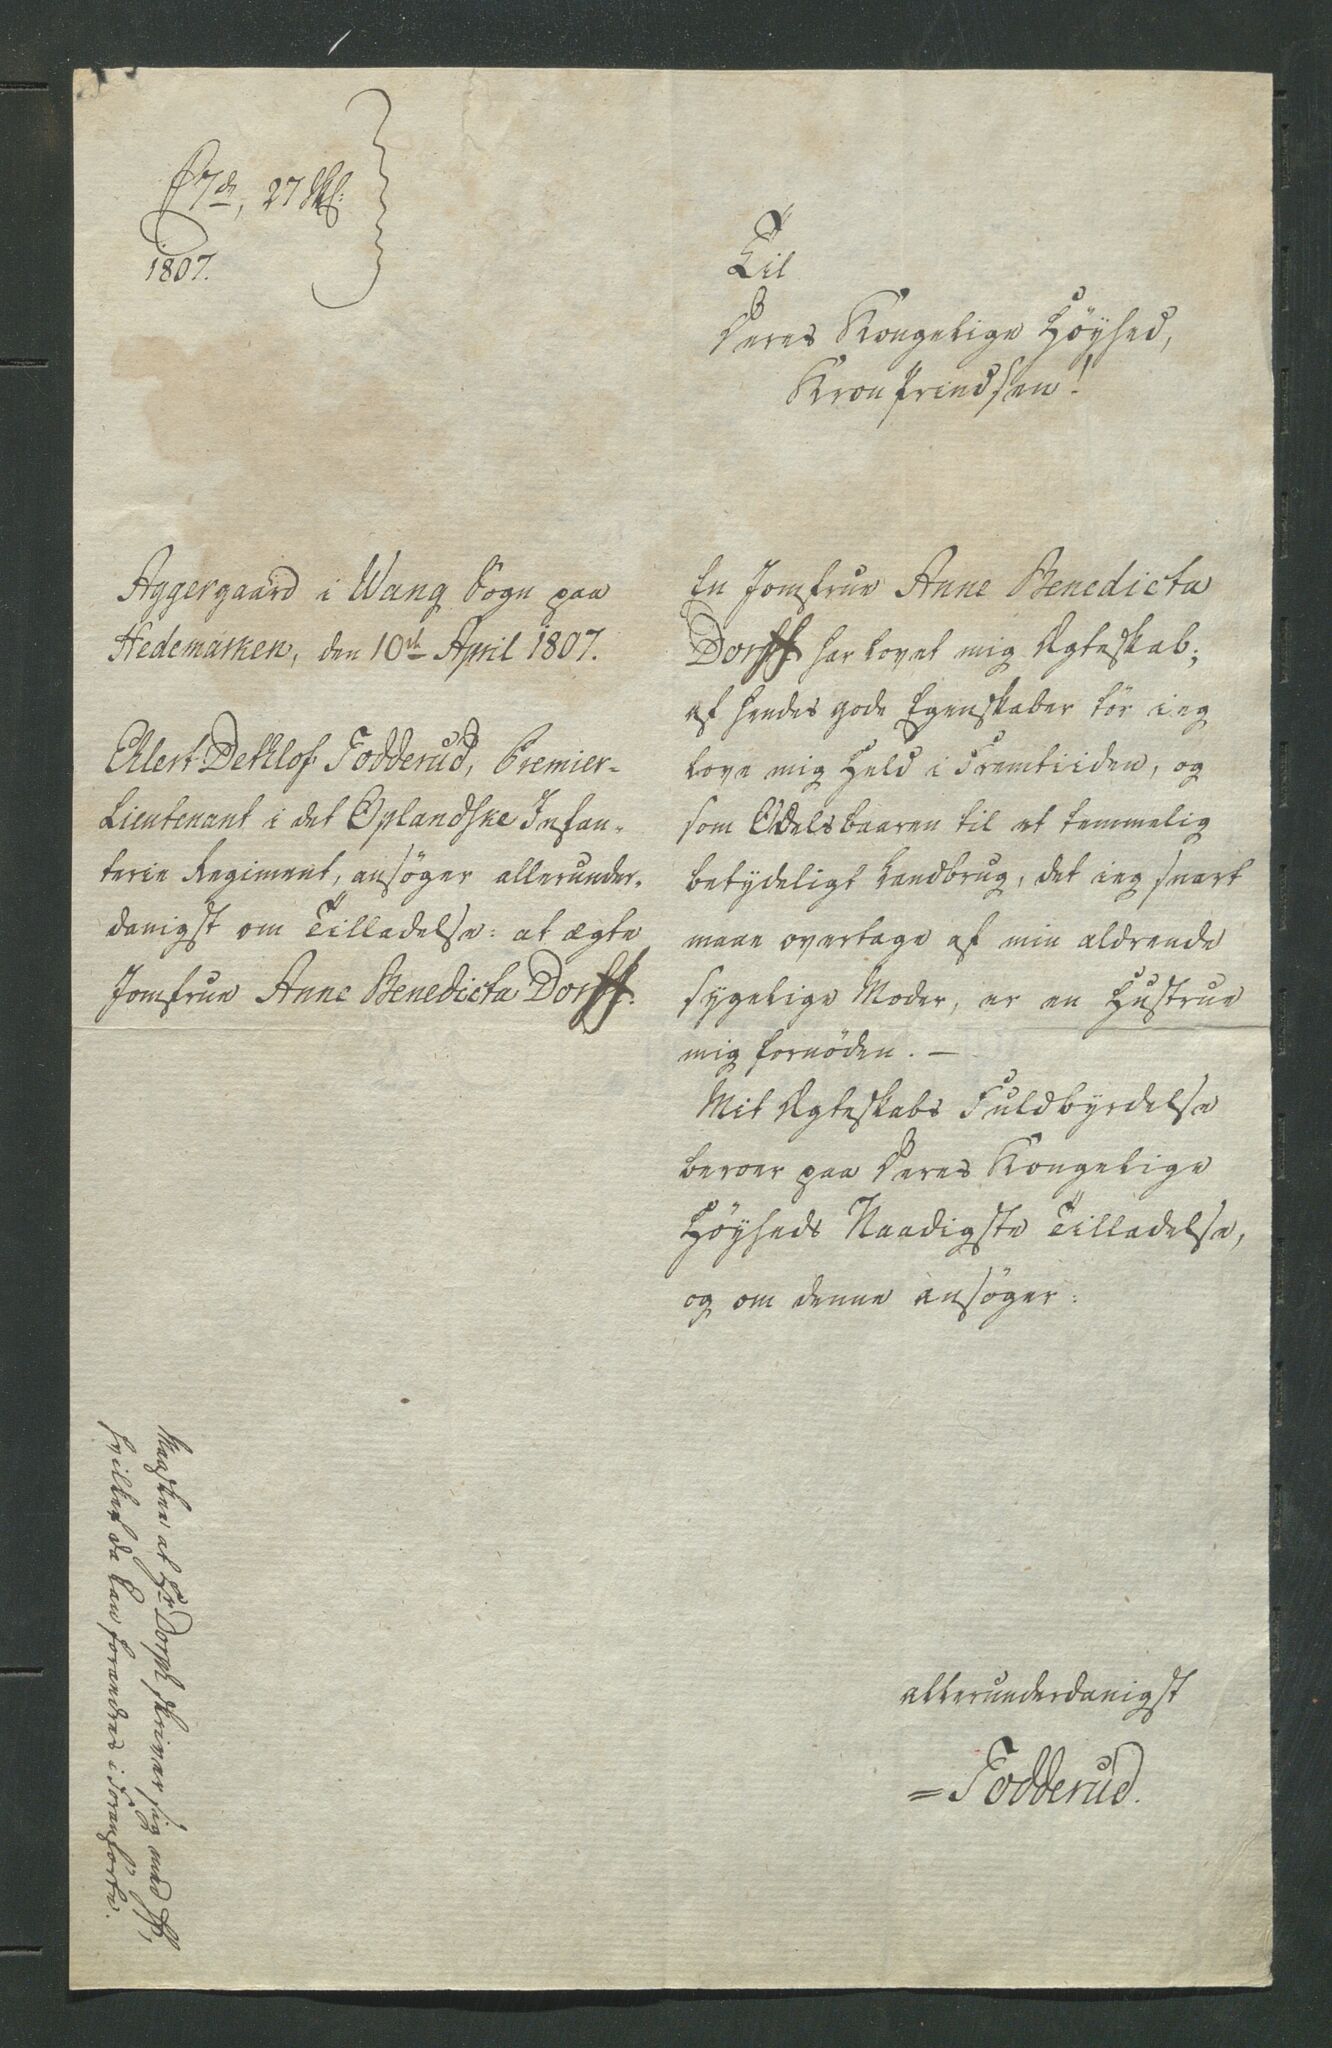 27 Skl:
1807.
Til
Deres Kongelige Höyhed,
Kron Prindsen!
Aggergaard i Wang Sogn paa
Hedemarken, den 10de April 1807.
Eilert Dethlof Fodderud, Premier-
Lieutenant i det Oplandske Infan-
terie Regiment, ansöger allerunder-
danigst om Tilladelse: at ægte
Jomfrue Anne Benedicta Dorff.
En Jomfrue Anne Benedicta
Dorff har lovet mig Ægteskab;
af hendes gode Egenskaber tör ieg
love mig Held i Fremtiiden, og
som Odelsbaaren til et temmelig
betydeligt Landbrug, det ieg snart
maae overtage af min aldrende
sygelige Moder, er en Hustrue
mig fornöden. —
Mit Ægteskabs Fuldbyrdelse
beroer paa Deres Kongelige
Höyheds Naadigste Tilladelse,
og om denne ansöger:
allerunderdanigst
= Fodderud.
Maaskee at Hr Dorph skriver sig med ff,
hvilket da kan forandres i Foranförte.